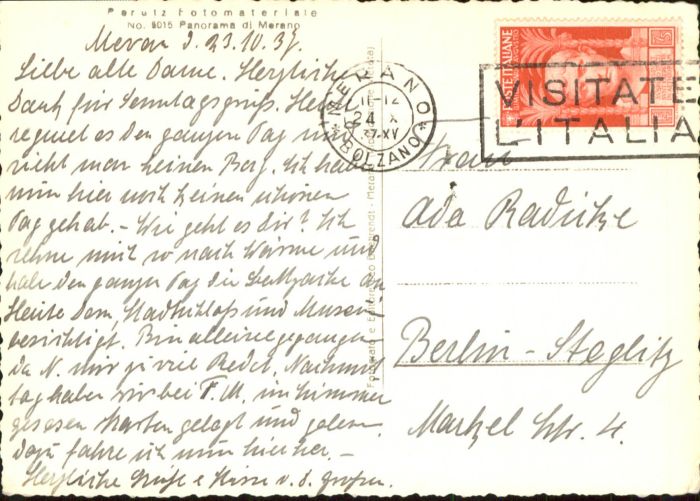 Perutz Fotomateriale
No. 9015 Panorama di Merano
Meran d. 23.10.37.
Liebe alte Dame. Herzliche
Dank für Sonntagsgruß. Heut
regnet es den ganzen Tag und
sieht man keinen Berg. Ich habe
nun hier noch keinen schönen
Tag gehabt. – Wie geht es dir? Ich
sehne mich so nach Wärme und
habe den ganzen Tag die an
Heute Dom, Stadtschloß und Museum
besichtigt. Bin alleine gegangen
da N. mir zu viel Redet. Nachmit
tag haben wir bei F. M. im Zimmer
gesessen Karten gelegt und gelesen.
Dazu fahre ich nun hierher. –
Herzliche Grüße & Küsse v. d.
MERANO
11-12
24 X
37-XV
BOLZANO
POSTE ITALIANE
75
VISITATE
L'ITALIA
Frau
Ada Radicke
Berlin-Steglitz
Markel Str. 4.